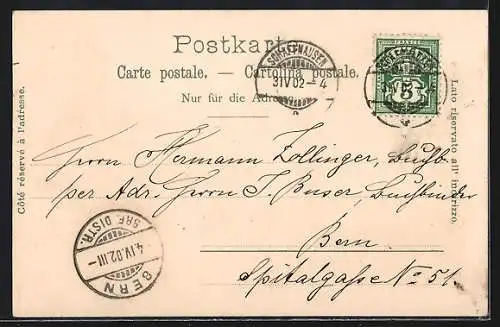 Postkarte.
Carte postale. — Cartolina postale.
Nur für die Adresse.
SCHAFFHAUSEN
3 IV 02 – 4
FRANCO
5
Côté réservé à l'adresse.
Lato riservato all' indirizzo.
Herrn Hermann Zollinger, Buchb.
per Adr. Herrn J. Buser, Buchbinder
Bern.
Spitalgasse No 51.
BERN
4.IV.02.III –
BRF. DISTR.